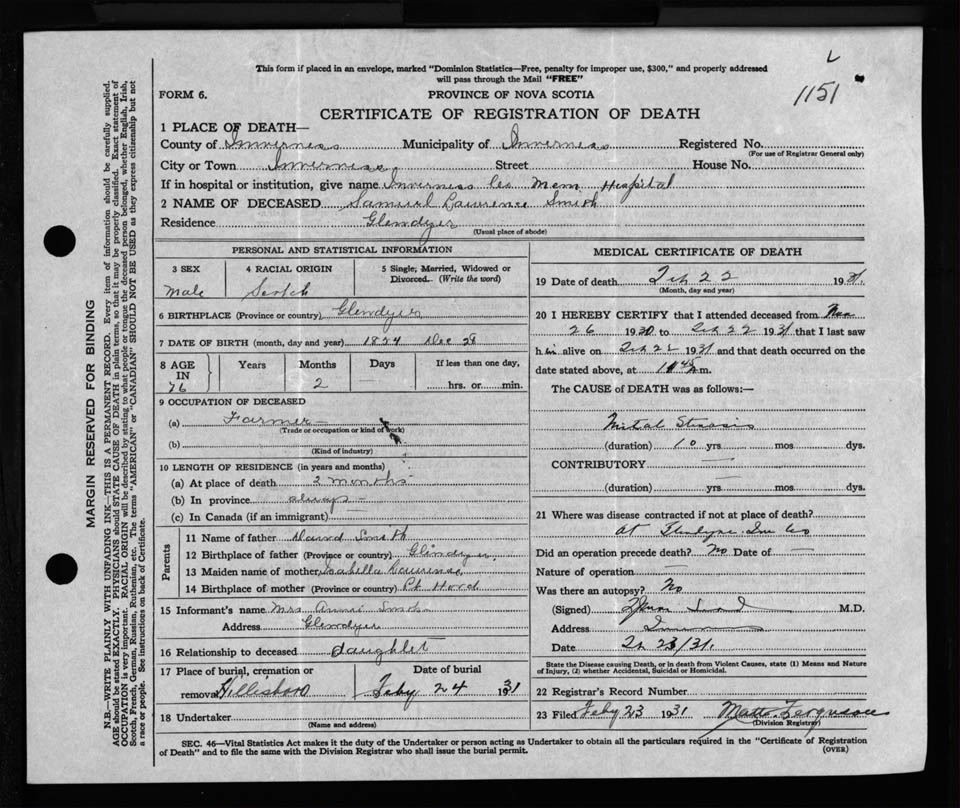 L
1151
This form if placed in an envelope, marked "Dominion Statistics—Free, penalty for improper use, $300," and properly addressed
will pass through the Mail "FREE"
FORM 6.
PROVINCE OF NOVA SCOTIA
CERTIFICATE OF REGISTRATION OF DEATH
1 PLACE OF DEATH—
County of Inverness Municipality of Inverness Registered No.
(For use of Registrar General only)
City or Town Inverness Street House No.
If in hospital or institution, give name Inverness Co Mem. Hospital
2 NAME OF DECEASED Samuel Lawrence Smith
Residence Glendyer
(Usual place of abode)
PERSONAL AND STATISTICAL INFORMATION
3 SEX 4 RACIAL ORIGIN 5 Single, Married, Widowed or
Divorced. (Write the word)
Male Scotch
6 BIRTHPLACE (Province or country) Glendyer
7 DATE OF BIRTH (month, day and year) 1854 Dec 28
8 AGE IN Years Months Days If less than one day,
76 2 — hrs. or min.
9 OCCUPATION OF DECEASED
(a) Farmer
(Trade or occupation or kind of work)
(b)
(Kind of industry)
10 LENGTH OF RESIDENCE (in years and months)
(a) At place of death 3 months
(b) In province always
(c) In Canada (if an immigrant)
Parents
11 Name of father David Smith
12 Birthplace of father (Province or country) Glendyer
13 Maiden name of mother Isabella Lawrence
14 Birthplace of mother (Province or country) Pt Hood
15 Informant's name Mrs Annie Smith
Address Glendyer
16 Relationship to deceased daughter
17 Place of burial, cremation or Date of burial
removal Hillisboro Feby 24 1931
18 Undertaker
(Name and address)
MEDICAL CERTIFICATE OF DEATH
19 Date of death Feb 22 1931.
(Month, day and year)
20 I HEREBY CERTIFY that I attended deceased from Nov
26 1930 to Feb 22 1931 that I last saw
him alive on Feb 22 1931 and that death occurred on the
date stated above, at 11 45 m.
The CAUSE of DEATH was as follows:—
Mitral Stenosis
(duration) 10 yrs mos dys.
CONTRIBUTORY —
(duration) — yrs — mos dys.
21 Where was disease contracted if not at place of death?
At Glendyer Inv Co
Did an operation precede death? No Date of —
Nature of operation —
Was there an autopsy? No
(Signed) M.D.
Address
Date Feb 23/31.
State the Disease causing Death, or in death from Violent Causes, state (1) Means and Nature
of Injury, (2) whether Accidental, Suicidal or Homicidal.
22 Registrar's Record Number
23 Filed Feby 23 1931 Matt. Ferguson
(Division Registrar)
SEC. 46—Vital Statistics Act makes it the duty of the Undertaker or person acting as Undertaker to obtain all the particulars required in the "Certificate of Registration
of Death" and to file the same with the Division Registrar who shall issue the burial permit.
(OVER)
MARGIN RESERVED FOR BINDING
N.B.—WRITE PLAINLY WITH UNFADING INK—THIS IS A PERMANENT RECORD. Every item of information should be carefully supplied.
AGE should be stated EXACTLY. PHYSICIANS should STATE CAUSE OF DEATH in plain terms, so that it may be properly classified. Exact statement of
OCCUPATION is very important. RACIAL ORIGIN will be described by stating to what people or tongue the deceased person belonged, whether English, Irish,
Scotch, French, German, Russian, Ruthenian, etc. The terms "AMERICAN" or "CANADIAN" SHOULD NOT BE USED as they express citizenship but not
a race or people. See instructions on back of Certificate.